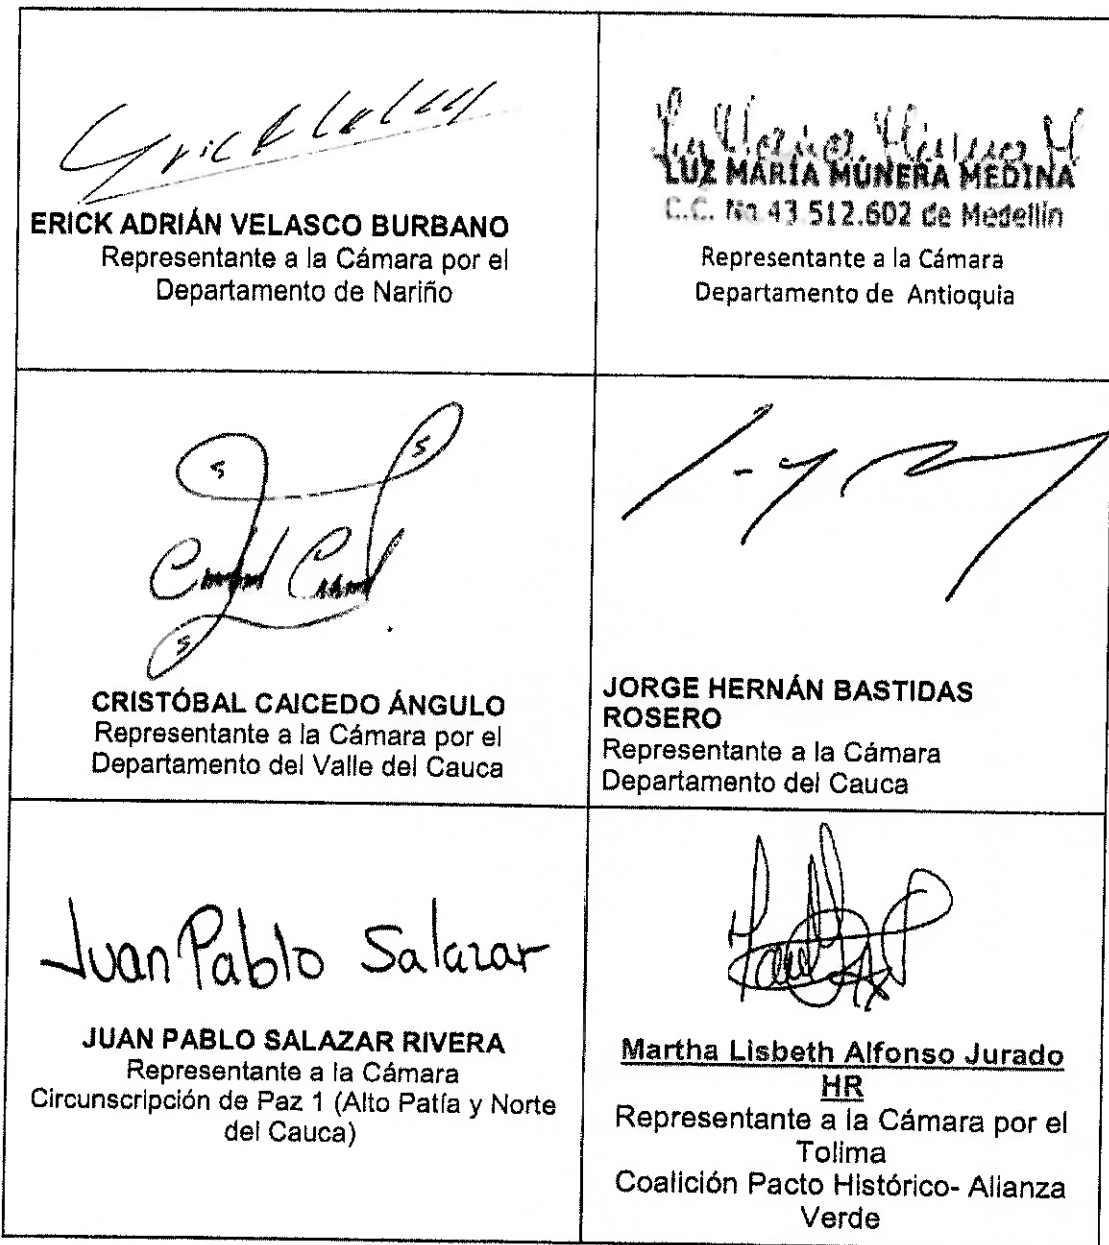 ERICK ADRIÁN VELASCO BURBANO
Representante a la Cámara por el
Departamento de Nariño
LUZ MARÍA MÚNERA MEDINA
C.C. No 43.512.602 de Medellín
Representante a la Cámara
Departamento de Antioquia
S
S
S
CRISTÓBAL CAICEDO ÁNGULO
Representante a la Cámara por el
Departamento del Valle del Cauca
JORGE HERNÁN BASTIDAS
ROSERO
Representante a la Cámara
Departamento del Cauca
Juan Pablo Salazar
JUAN PABLO SALAZAR RIVERA
Representante a la Cámara
Circunscripción de Paz 1 (Alto Patía y Norte
del Cauca)
Martha Lisbeth Alfonso Jurado
HR
Representante a la Cámara por el
Tolima
Coalición Pacto Histórico- Alianza
Verde